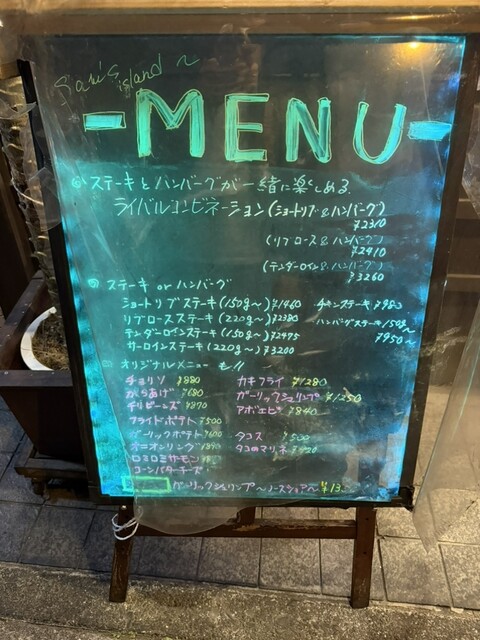 island
-MENU-
◎ ステーキとハンバーグが一緒に楽しめる
ライバルコンビネーション(ショートリブ&ハンバーグ)
¥2310
(リブロース&ハンバーグ)
¥2910
(テンダーロイン&ハンバーグ)
¥3260
◎ ステーキ or ハンバーグ
ショートリブステーキ(150g〜) ¥1460 チキンステーキ ¥980
リブロースステーキ(220g〜) ¥2380 ハンバーグステーキ 150g〜
テンダーロインステーキ(150g〜) ¥2475 ¥950〜
サーロインステーキ(220g〜) ¥3200
オリジナルメニュー も!!
チョリソ ¥880 カキフライ ¥1280
からあげ ¥680 ガーリックシュリンプ ¥1250
チリビーンズ ¥870 アボエビ ¥840
フライドポテト ¥500
ガーリックポテト ¥600 タコス ¥500
オニオンリング ¥890 タコのマリネ
ロミロミサーモン
コーンバターチーズ
ガーリックシュリンプ〜ノースショア〜